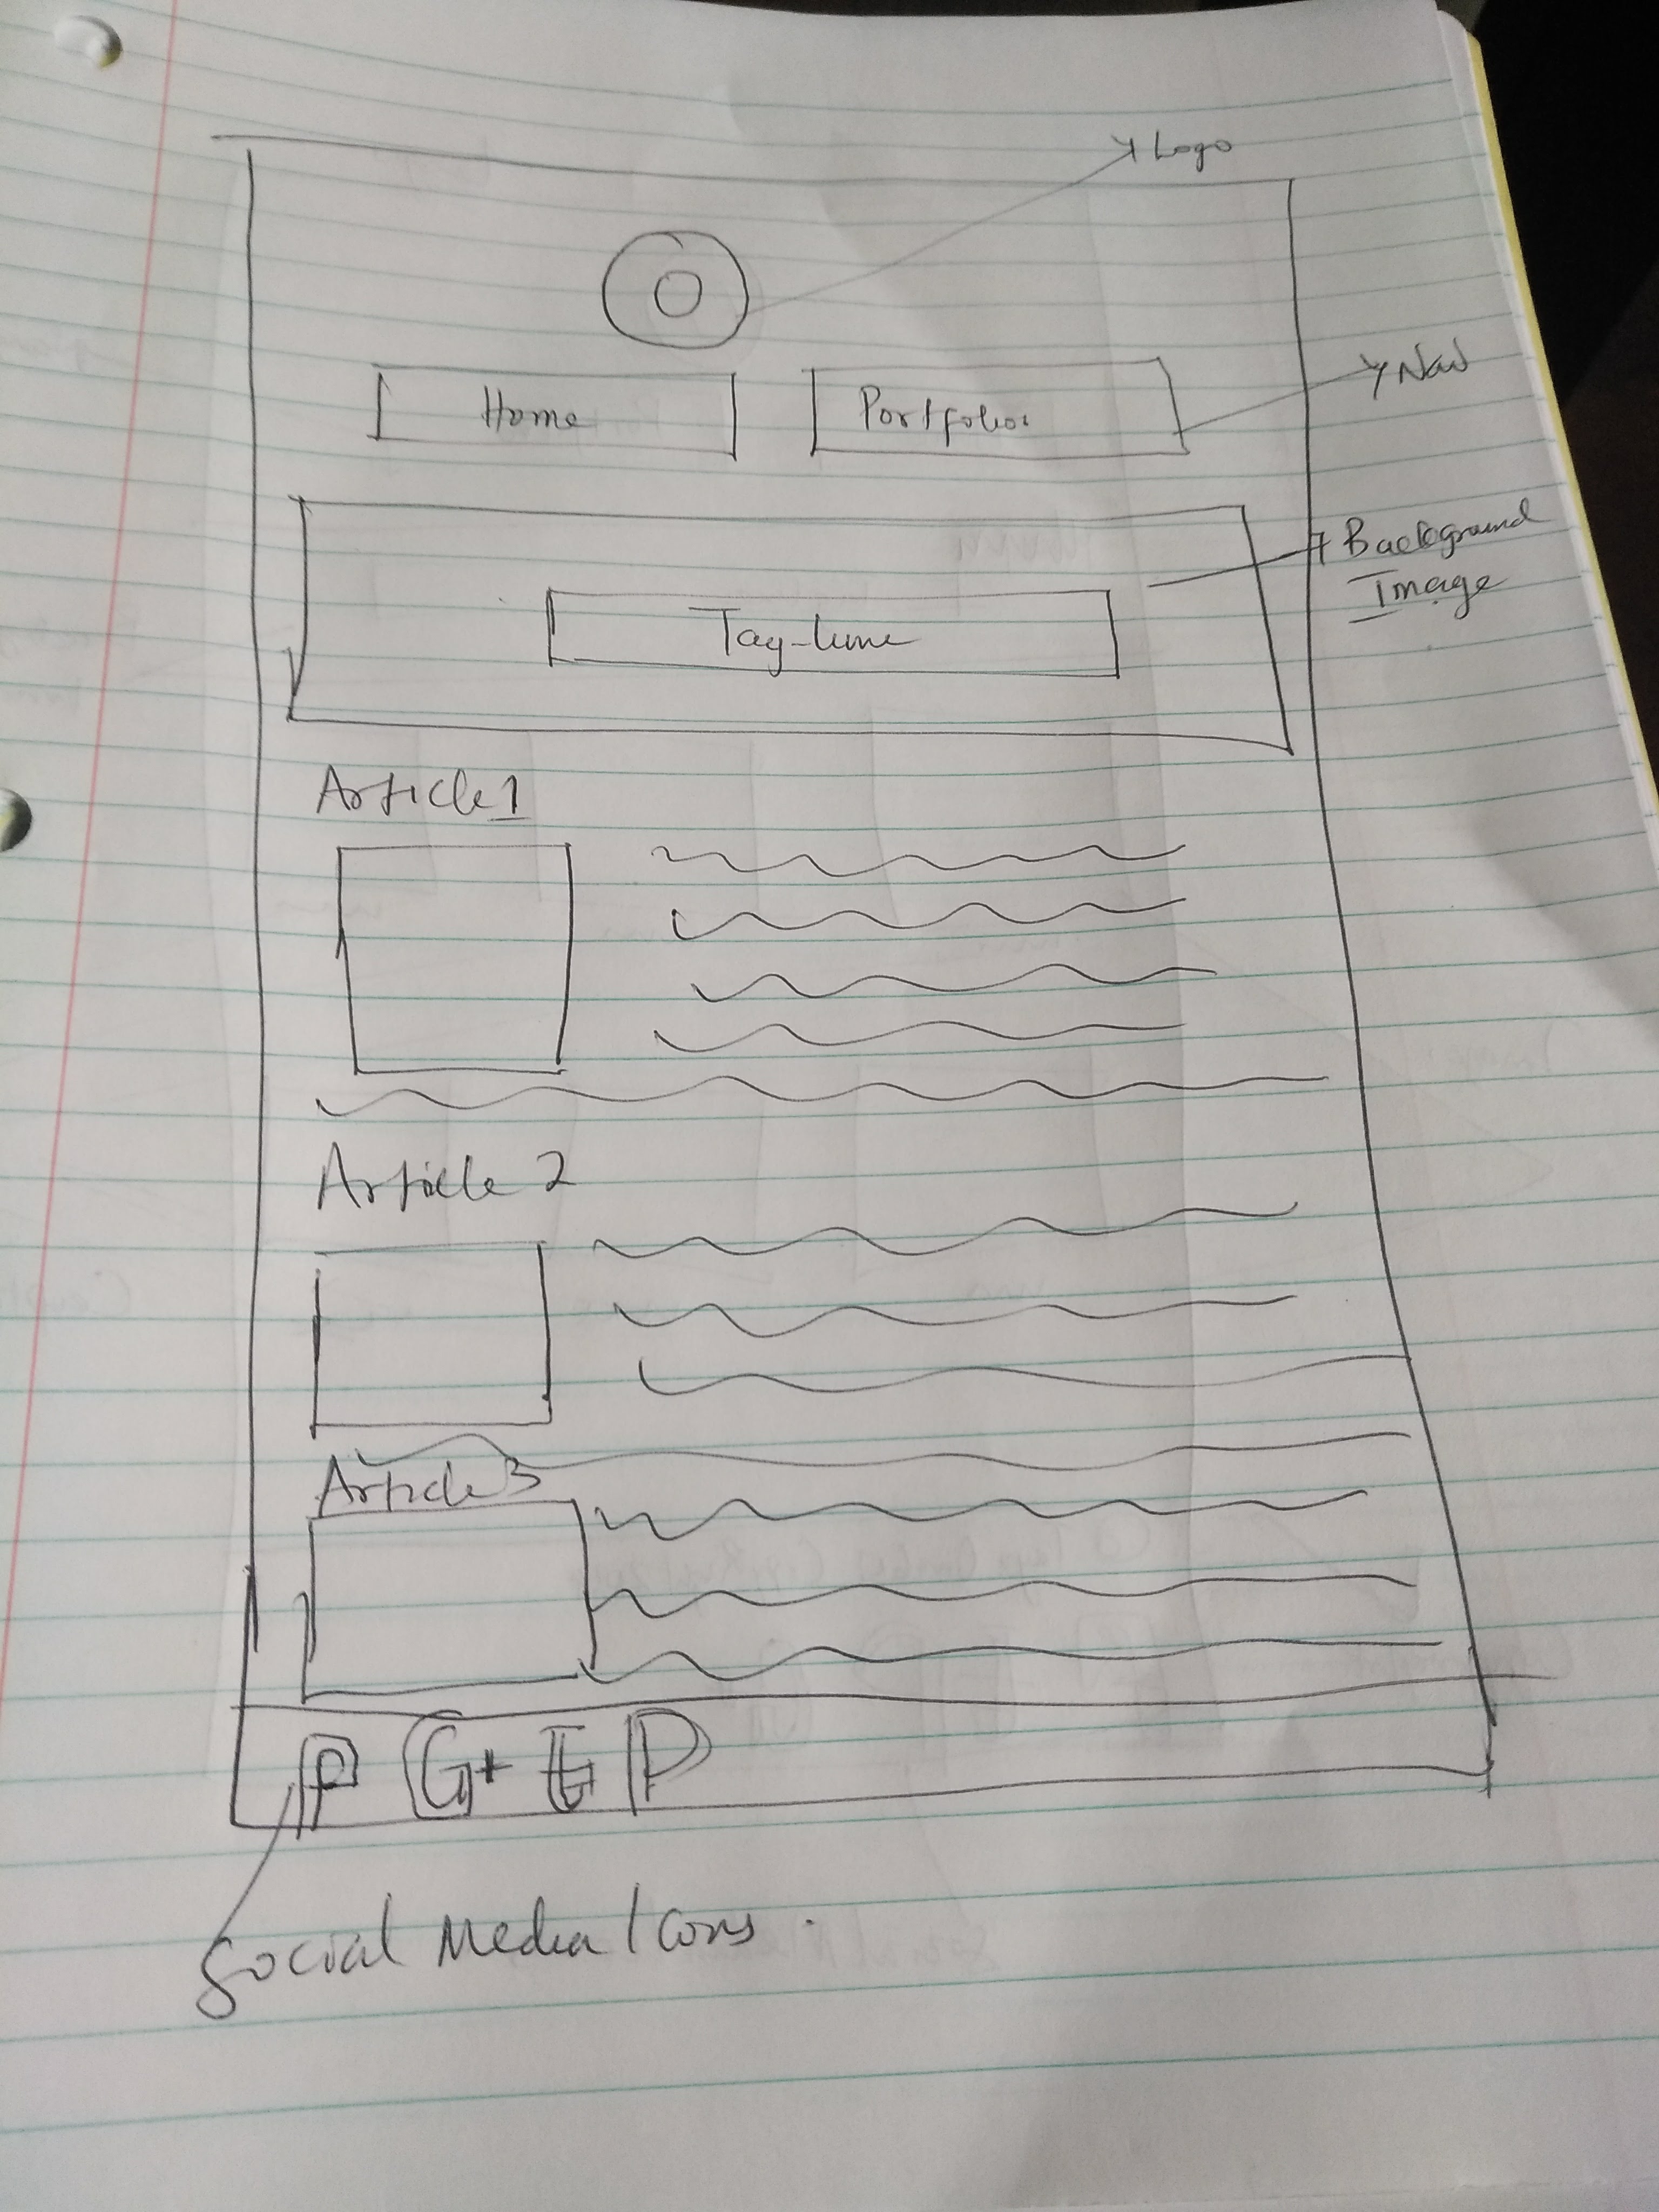 Logo
Home
Portfolios
Nav
Background
Image
Tag-line
Article 1
Article 2
Article 3
G+
P
Social Media Icons.